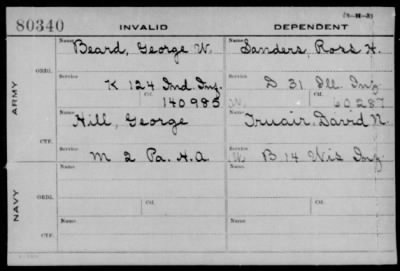 (3-H-3)
80340 INVALID DEPENDENT
ARMY
ORD.
Name Beard, George W. Name Sanders, Ross H.
Service K 124 Ind. Inf. Service D 31 Ill. Inf.
Ctf. 140985 W. Ctf. 60287
CTF.
Name Hill, George Name Truair, David N.
Service M 2 Pa. H.A. W. B 14 Wis Inf.
NAVY
ORD.
Name Name
Service Ctf. Service Ctf.
CTF.
Name Name
Service Service